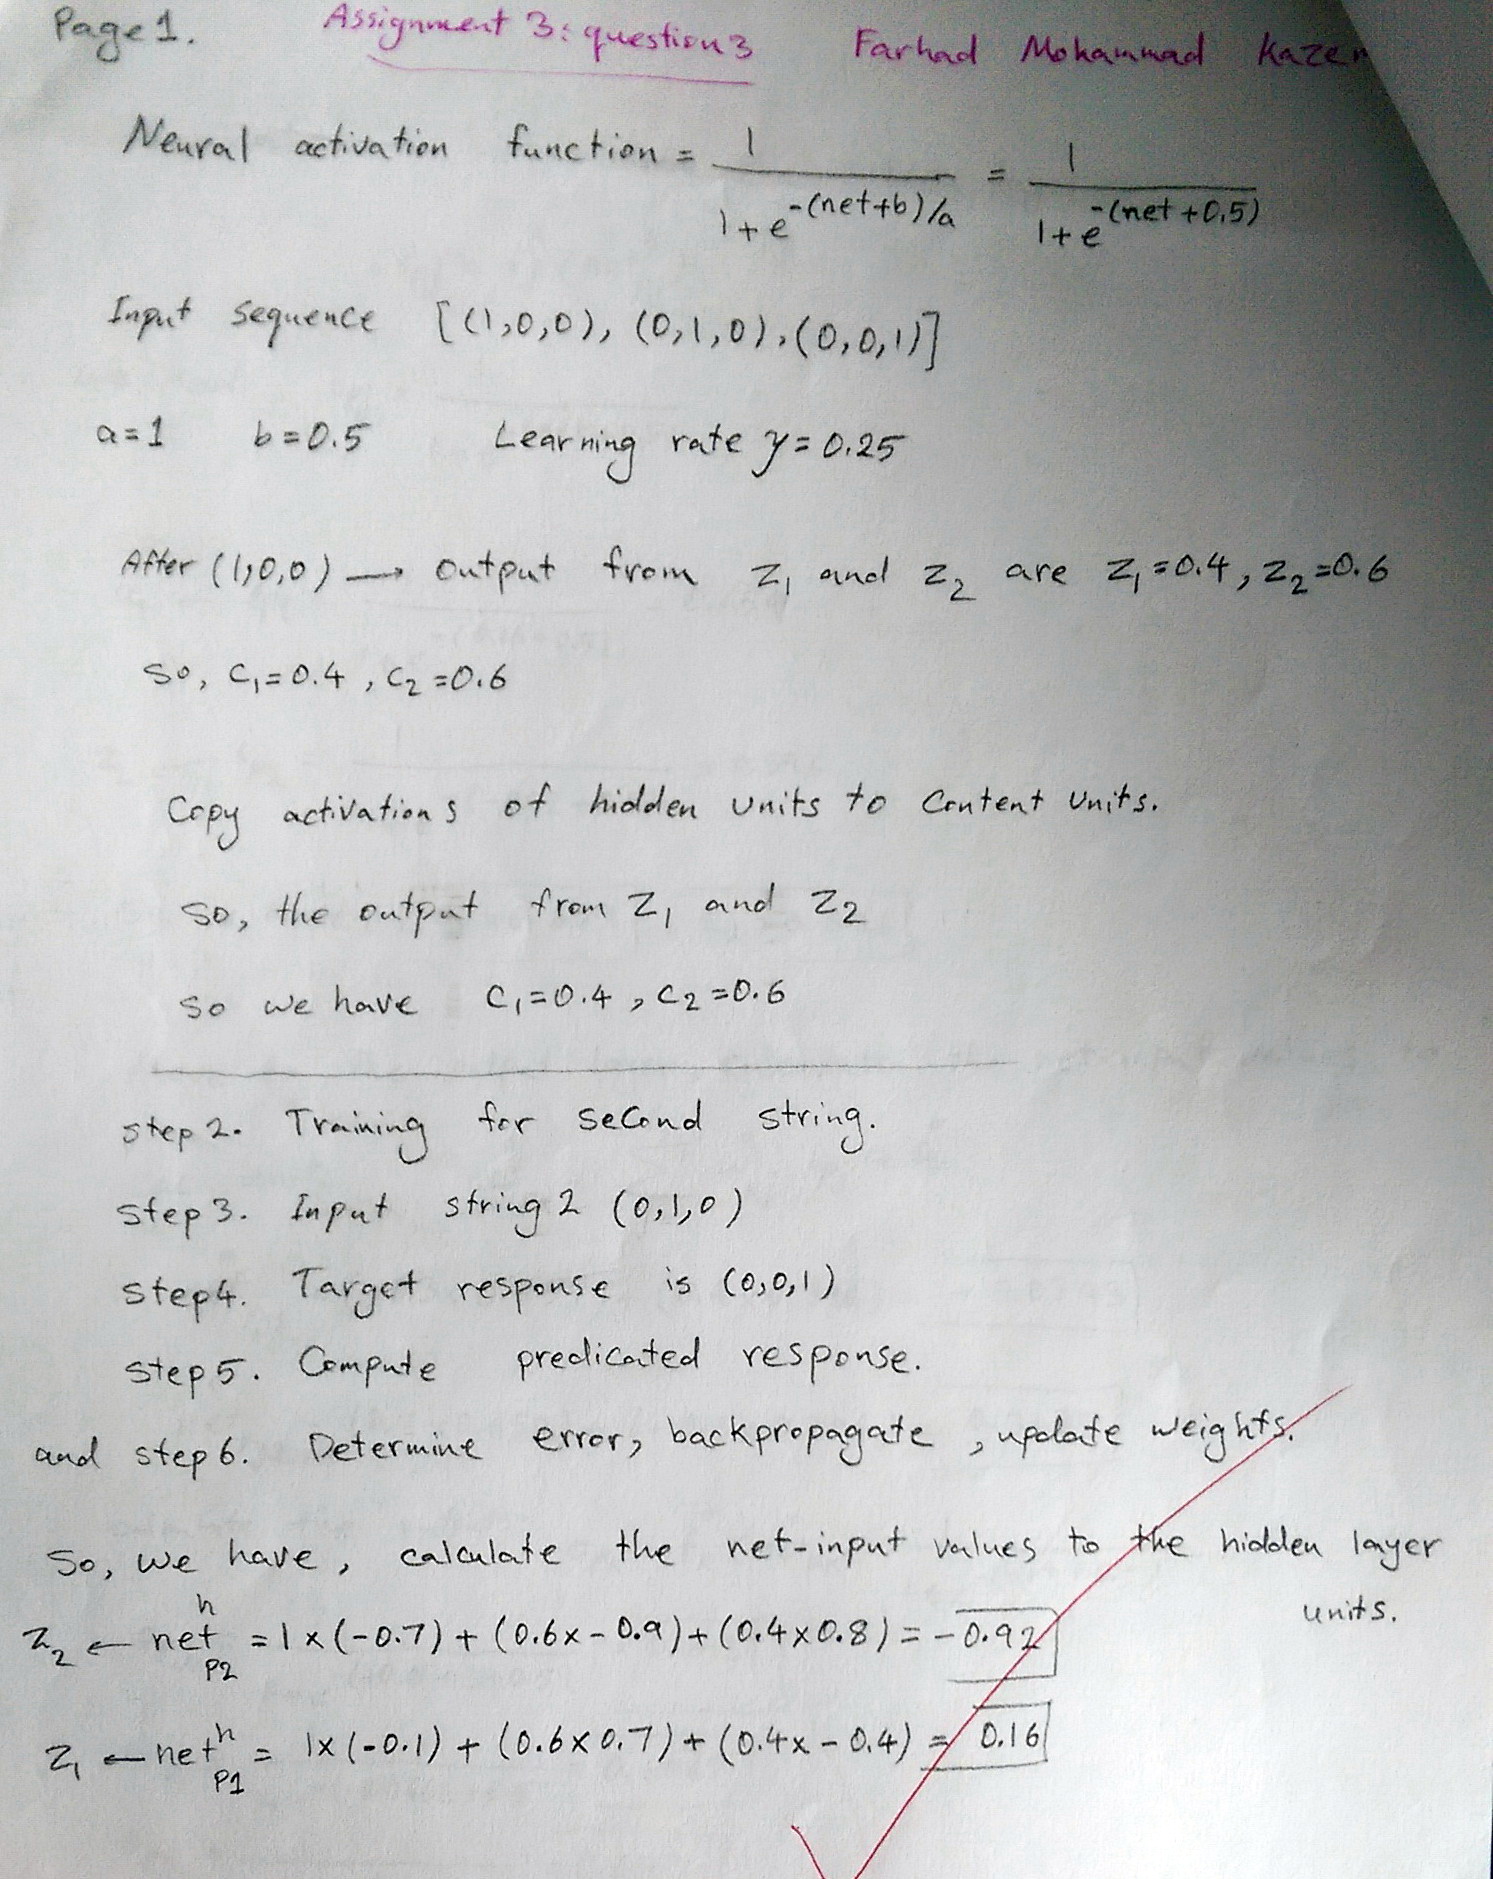 Page 1. Assignment 3: question 3 Farhad Mohammad Kazem
Neural activation function = 1 / 1+e^-(net+b)/a = 1 / 1+e^-(net+0.5)
Input sequence [(1,0,0), (0,1,0), (0,0,1)]
a=1 b=0.5 Learning rate y=0.25
After (1,0,0) → output from Z₁ and Z₂ are Z₁=0.4, Z₂=0.6
So, C₁=0.4, C₂=0.6
Copy activations of hidden units to Content Units.
So, the output from Z₁ and Z₂
So we have C₁=0.4, C₂=0.6
step 2. Training for second string.
step 3. Input string 2 (0,1,0)
step 4. Target response is (0,0,1)
step 5. Compute predicated response.
and step 6. Determine error, backpropagate, update weights.
So, we have, calculate the net-input values to the hidden layer
units.
Z₂ ← net^h_P2 = 1×(-0.7) + (0.6×-0.9)+(0.4×0.8) = -0.92
Z₁ ← net^h_P1 = 1×(-0.1) + (0.6×0.7)+(0.4×-0.4) = 0.16